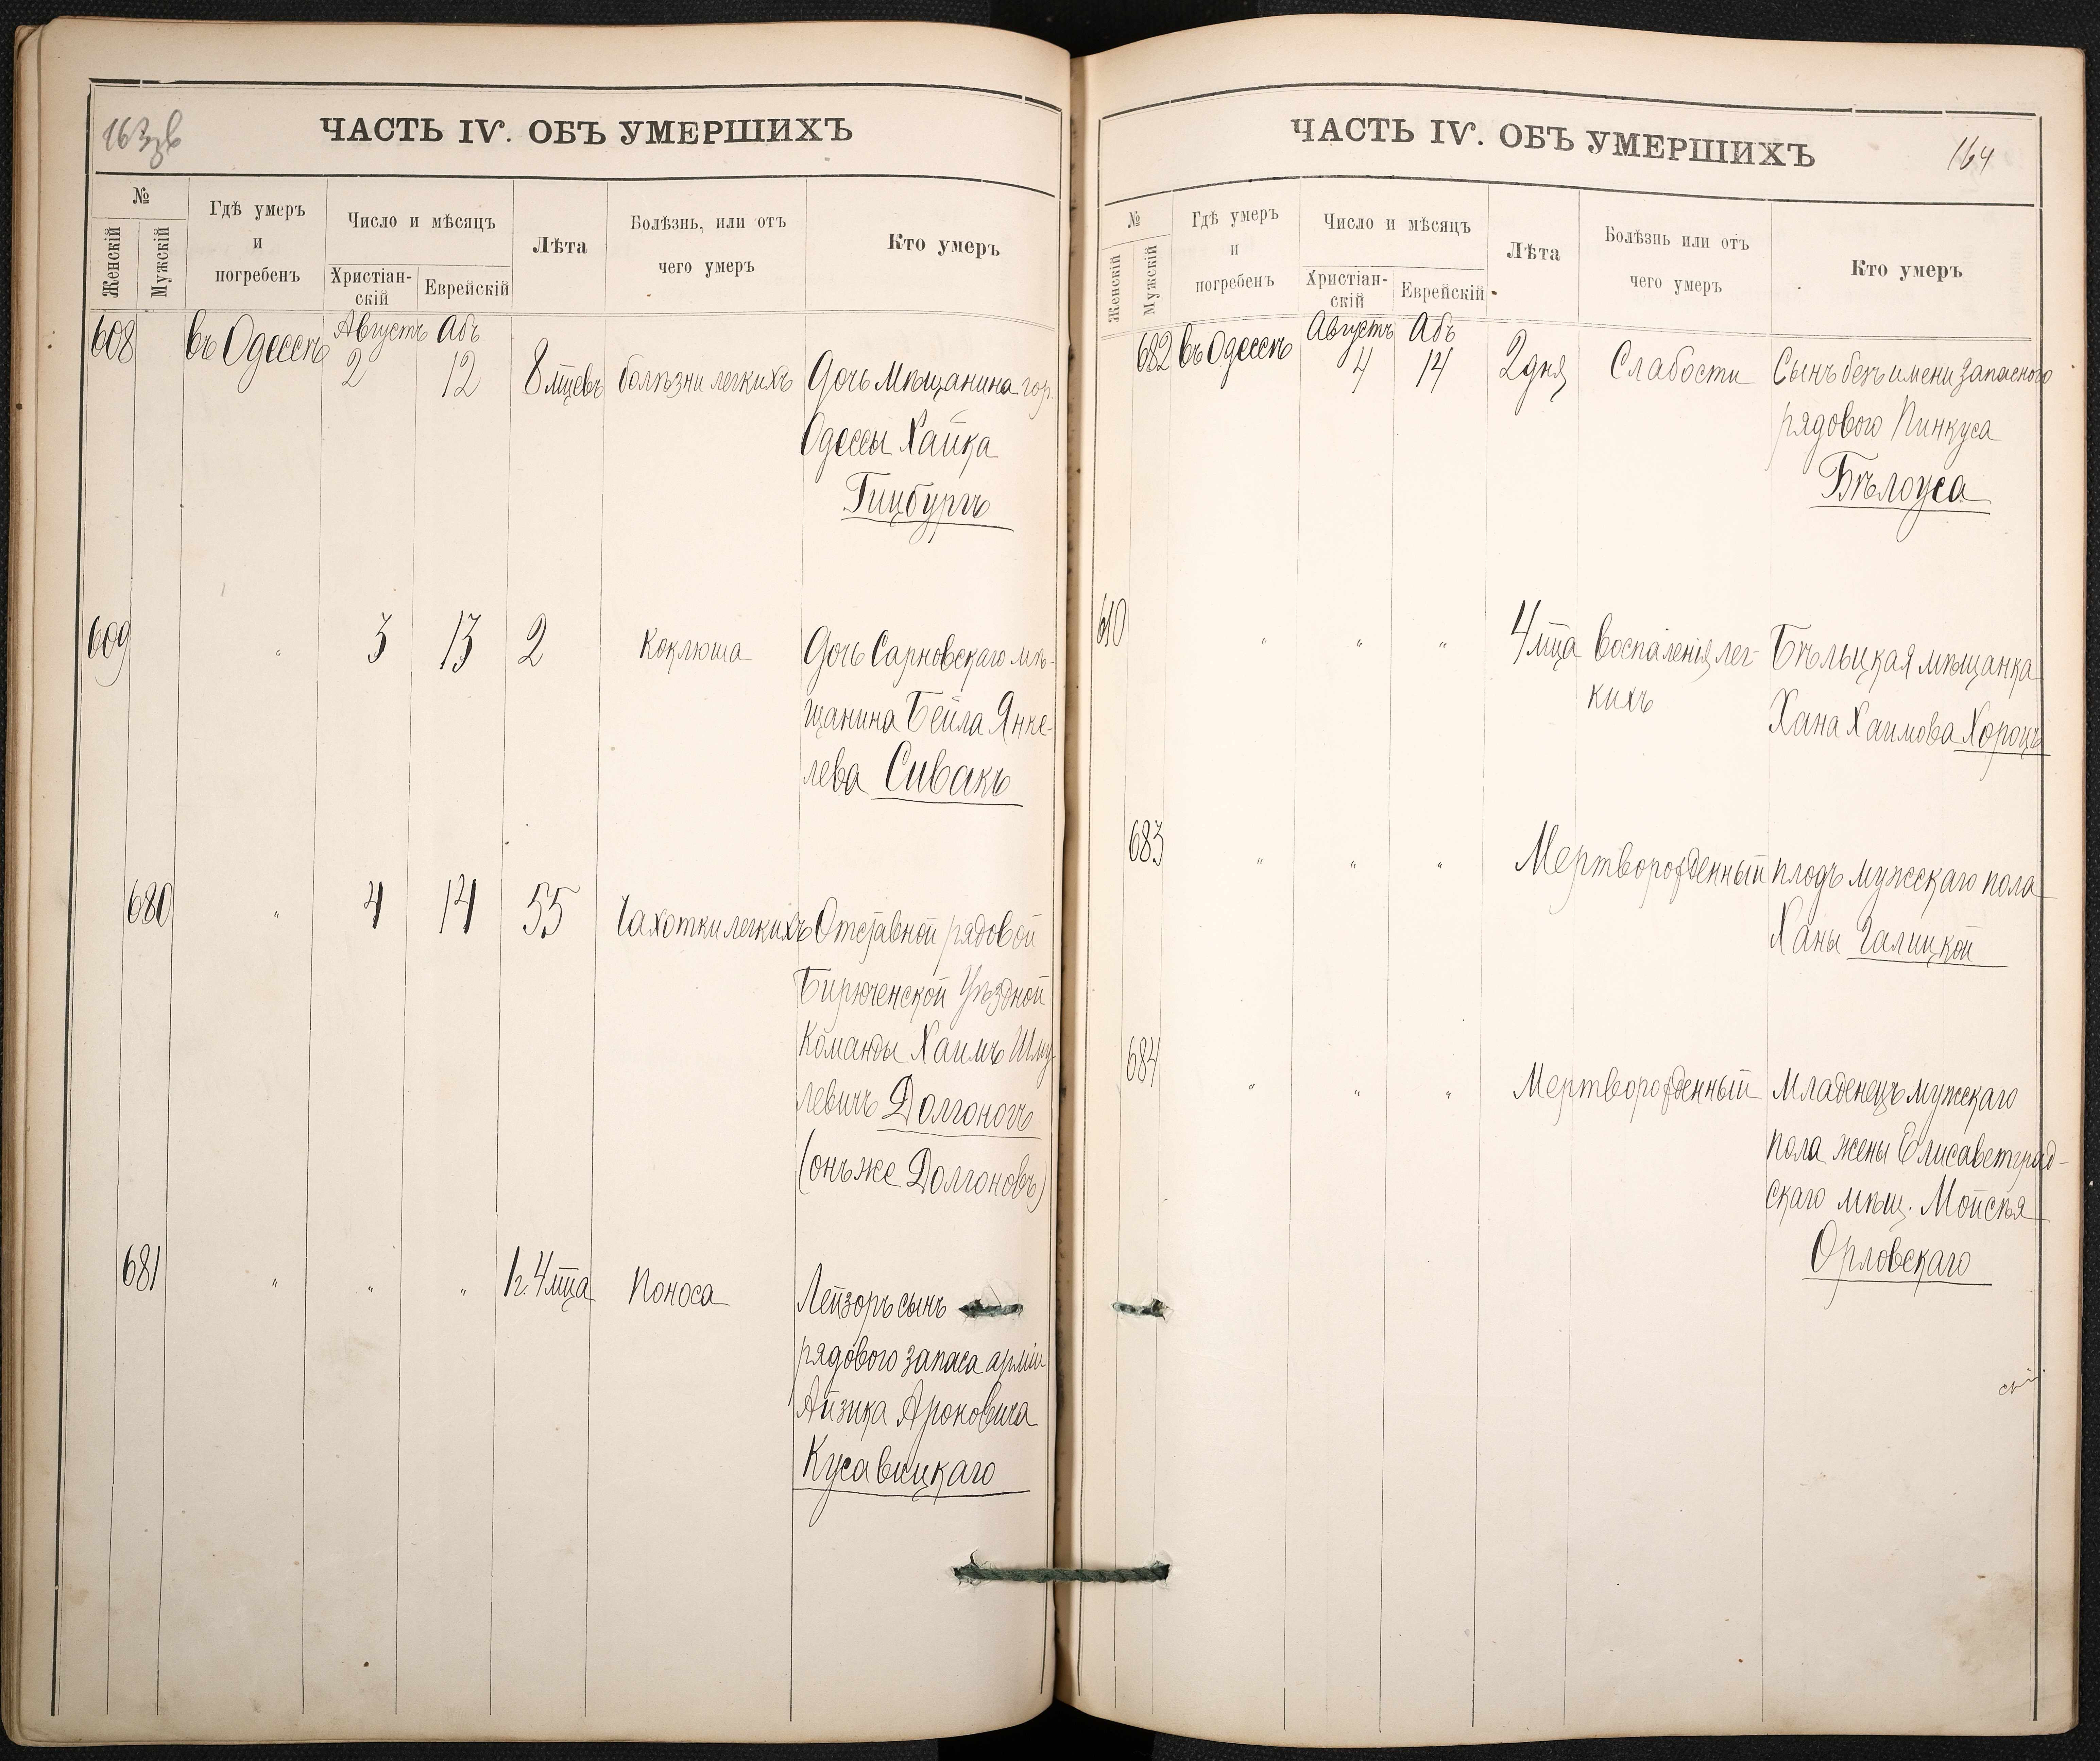 163зв
ЧАСТЬ IV. ОБЪ УМЕРШИХЪ
№
Женскій
Мужскій
Гдѣ умеръ
и
погребенъ
Число и мѣсяцъ
Христіан-
скій
Еврейскій
Лѣта
Болѣзнь, или отъ
чего умеръ
Кто умеръ
608 въ Одессѣ Августъ Абъ
2 12 8 м̃цевъ болѣзни легкихъ Дочь Мѣщанина гор.
Одессы Хайка
Гинбургъ
609 " 3 13 2 Коклюша Дочь Сарновскаго мѣ-
щанина Бейла Янке-
лева Сивакъ
680 " 4 14 55 Чахотки легкихъ Отставной рядовой
Бирюченской Уѣздной
Команды Хаимъ Шму-
левичъ Долгоногъ
(онъ же Долгоновъ)
681 " " " 1 г. 4 м̃ца Поноса Лейзоръ сынъ
рядового запаса арміи
Айзика Ароновича
Кусавицкаго
ЧАСТЬ IV. ОБЪ УМЕРШИХЪ
164
№
Женскій
Мужскій
Гдѣ умеръ
и
погребенъ
Число и мѣсяцъ
Христіан-
скій
Еврейскій
Лѣта
Болѣзнь или отъ
чего умеръ
Кто умеръ
682 въ Одессѣ Августъ Абъ
4 14 2 дня Слабости Сынъ безъ имени запасного
рядового Пинкуса
Бѣлоуса
610 " " " 4 м̃ца воспаленія лег-
кихъ
Бѣльцкая мѣщанка
Хана Хаимова Хорощъ
683 " " " Мертворожденный плодъ мужскаго пола
Ханы Галицкой
684 " " " Мертворожденный Младенецъ мужскаго
пола жены Елисаветград-
скаго мѣщ. Мойсѣя
Орловскаго